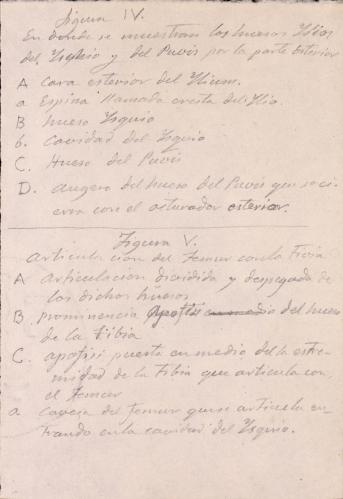 Figura IV.
En donde se muestran los huesos Ilios
del Ysquio y del Puvis por la parte exterior
A Cara exterior del Ilium.
a Espina llamada cresta del Ilio.
B hueso Ysquio
b. cavidad del Ysquio
C. Hueso del Puvis
D. augero del hueso del Puvis que se ci
erra con el octurador exterior.
Figura V.
Articulacion del femur con la Tivia
A articulacion dividida y despegada de
los dichos huesos
B. prominencia Apofisis en medio del hueso
de la tibia
C. apofisi puesta en medio de la estre-
midad de la Tibia que articula con
el femur
a caveza del femur que se articula en
trando en la cavidad del Ysquio.